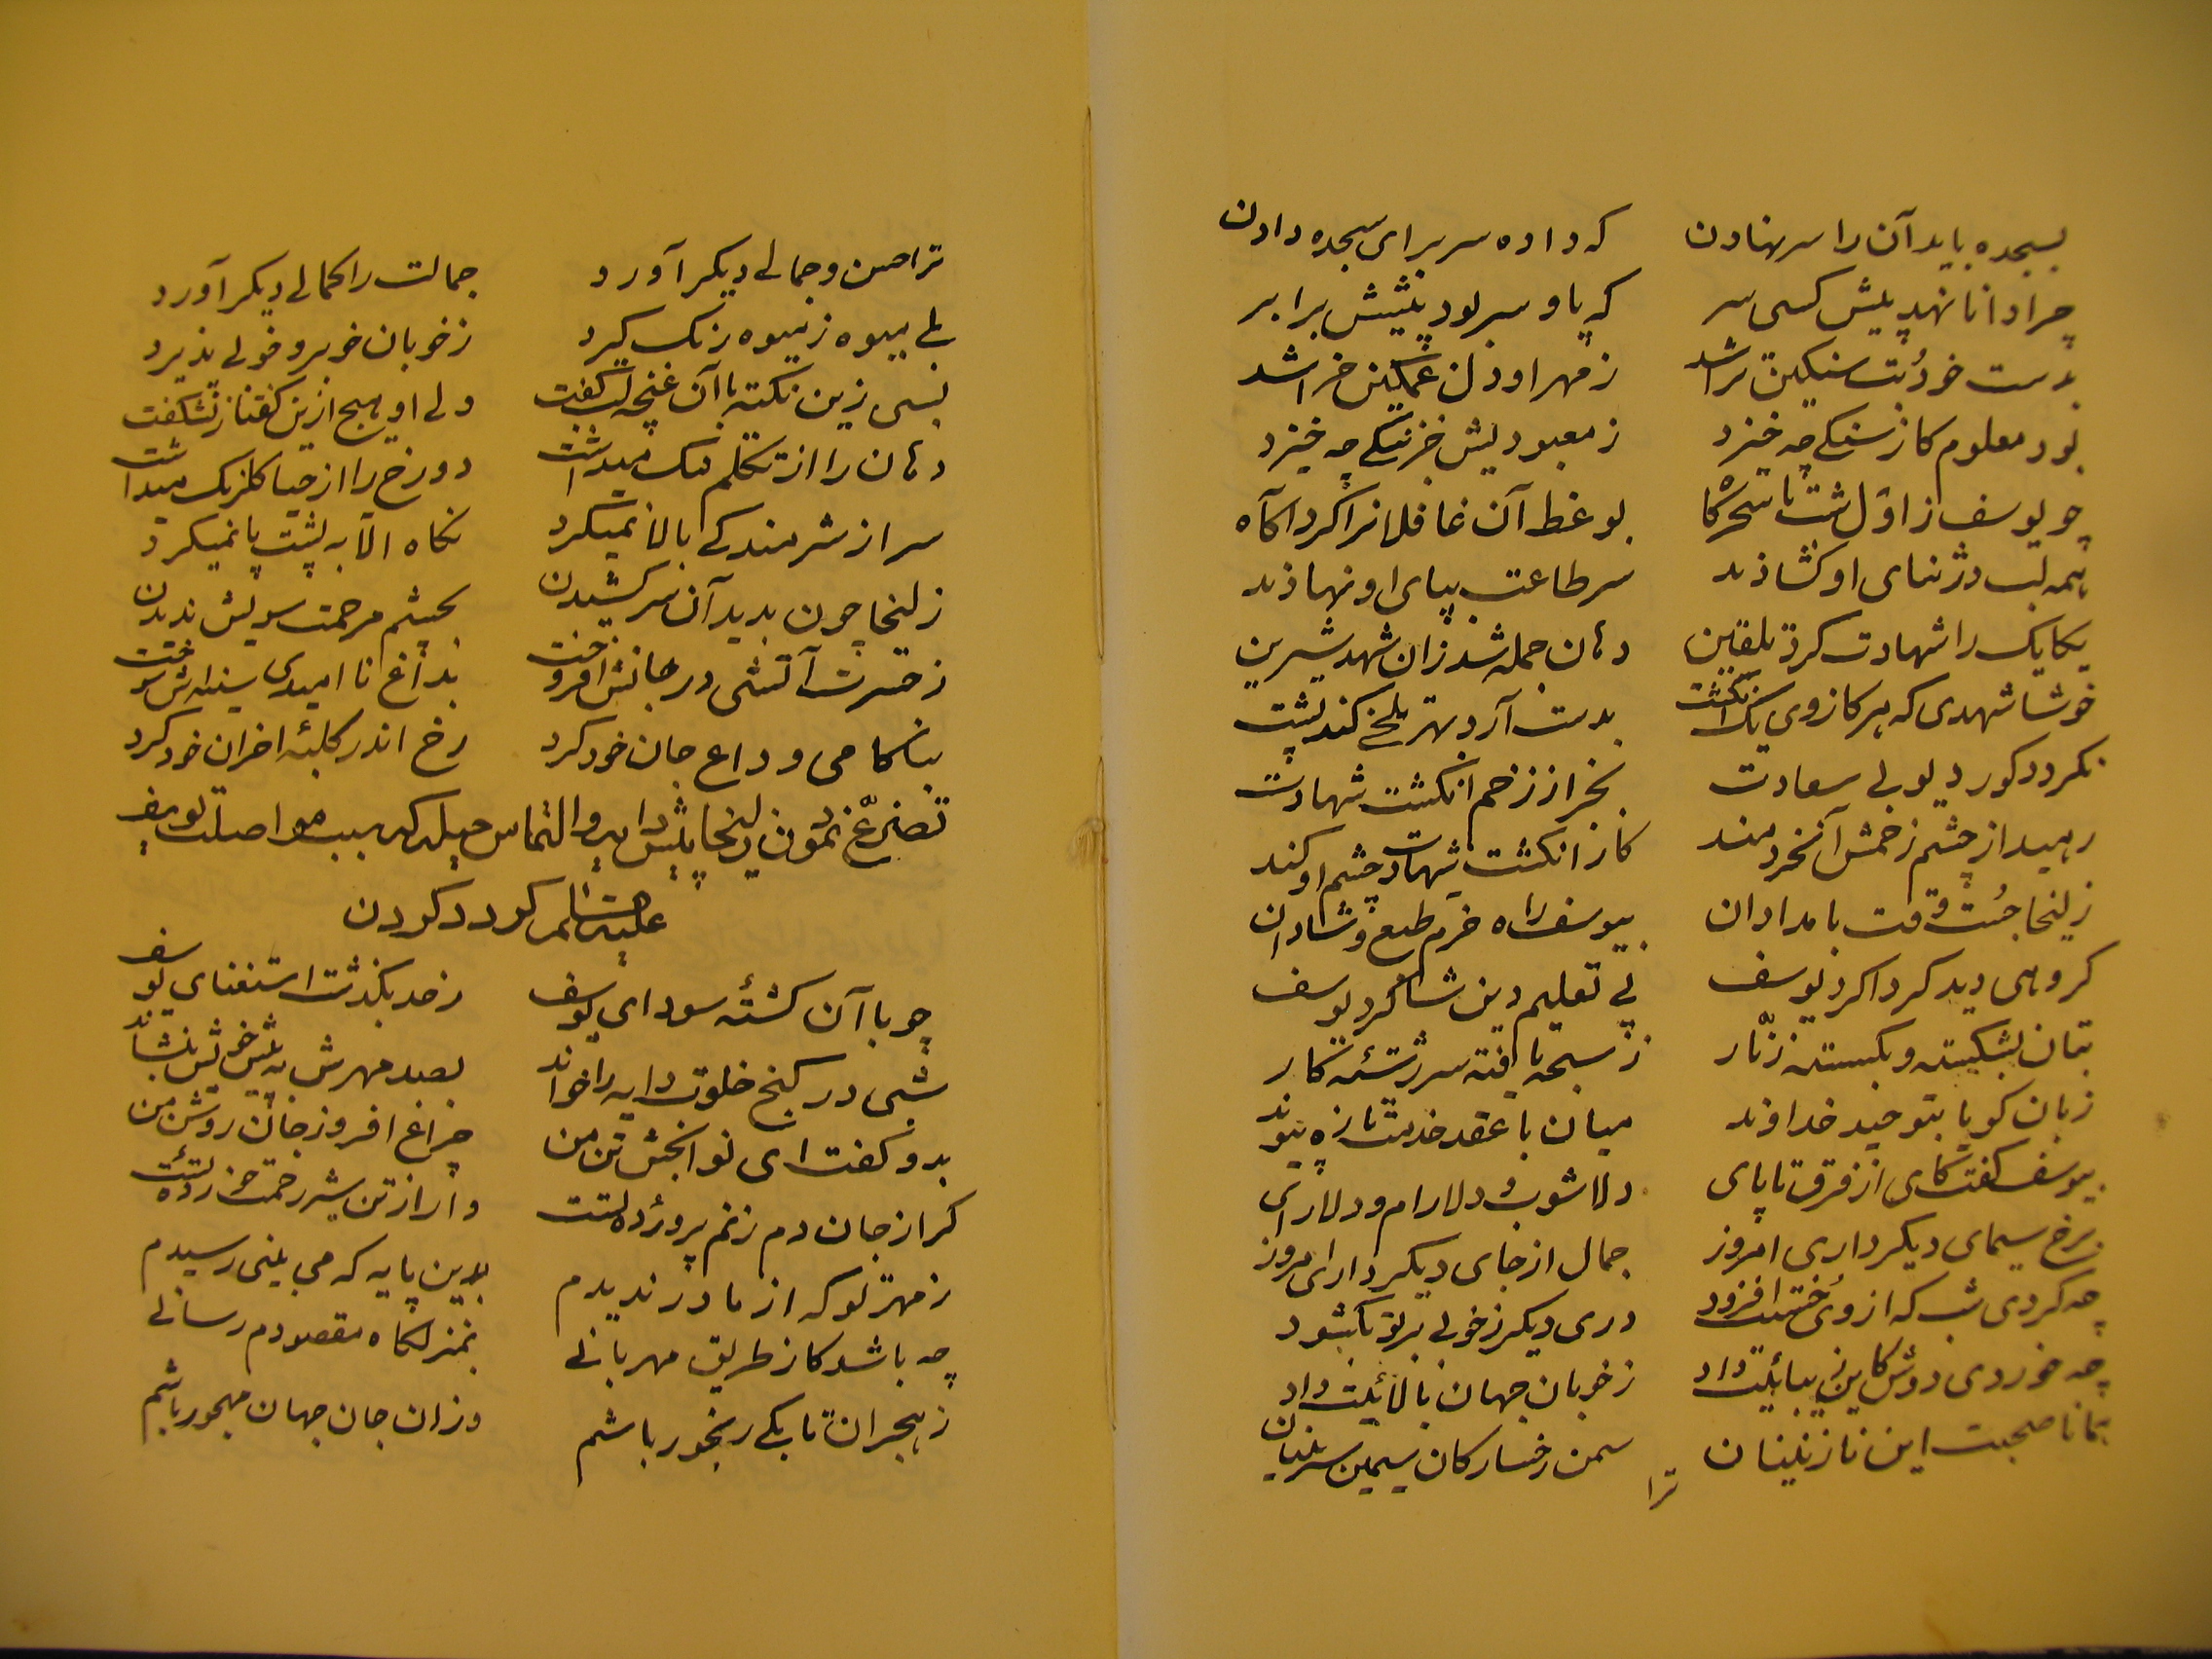 بسجده باید آن را سر نهادن که داده سر برای سجده دادن
چرا دانا نهد پیش کسی سر که پا و سر بود پیشش برابر
بدست خود بت سنکین تراشد ز مهر او دل غمکین خراشد
بود معلوم کاز سنکی چه خیزد ز معبودیش جز ننکی چه خیزد
چو یوسف ز اول شب تا سحرکاه بوعظ آن غافلانرا کرد آکاه
همه لب در ثنای او کشادند سر طاعت بپای او نهادند
یکایک را شهادت کرد تلقین دهان جمله شد زان شهد شیرین
خوشا شهدی که هر کاز وی یک انکشت بدست آرد تلخی کند پشت
نکردد کور دیو بی سعادت بجز از زخم انکشت شهادت
رهید از چشم زخمش آن خردمند کاز انکشت شهادت چشم او کند
زلیخا جست وقت بامدادان بیوسف راه خرم طبع و شادان
کروهی دید کرداکرد یوسف پی تعلیم دین شاکرد یوسف
بتان بشکسته و بکسسته زنّار ز سبحه یافته سر رشتهٔ کار
زبان کویا بتوحید خداوند میان با عقد خدمت تازه پیوند
بیوسف کفت کای از فرق تا پای دلاشوب و دلارام و دلارای
برخ سیمای دیکر داری امروز جمال از جای دیکر داری امروز
چه کردی شب که از وی حسنت افزود دری دیکر ز خوبی بر تو بکشود
چه خوردی دوش کاین زیبائیت داد ز خوبان جهان بالائیت داد
همانا صحبت این نازنینان سمن رخسارکان سیمین سرینان
ترا
ترا حسن و جمالی دیکر آورد جمالت را کمالی دیکر آورد
بلی میوه ز میوه رنک کیرد ز خوبان خوبرو خوبی پذیرد
بسی زین نکته با آن غنچه لب کفت ولی او هیچ ازین کفتار نشکفت
دهان را از تکلم تنک میداشت دو رخ را از حیا کلرنک میداشت
سر از شرمندکی بالا نمیکرد نکاه الا به پشت پا نمیکرد
زلیخا چون بدید آن سر کشیدن بچشم مرحمت سویش ندیدن
ز حسرت آتشی در جانش افروخت بداغ نا امیدی سینه اش سوخت
بناکامی وداع جان خود کرد رخ اندر کلبهٔ احزان خود کرد
تضرّع نمودن زلیخا پیش دایه و التماس حیله که سبب مواصلت یوسف
علیه السلام کردد کردن
چو با آن کشتهٔ سودای یوسف ز حد بکذشت استغنای یوسف
شبی در کنج خلوت دایه را خواند بصد مهرش به پیش خویش بنشاند
بدو کفت ای توانبخش تن من چراغ افروز جان روشن من
کر از جان دم زنم پروردهٔ تست ور از تن شیر رحمت خوردهٔ تست
ز مهر تو که از مادر ندیدم بدین پایه که می بینی رسیدم
چه باشد کاز طریق مهربانی بمنزلکاه مقصودم رسانی
ز هجران تا بکی رنجور باشم وزان جان جهان مهجور باشم